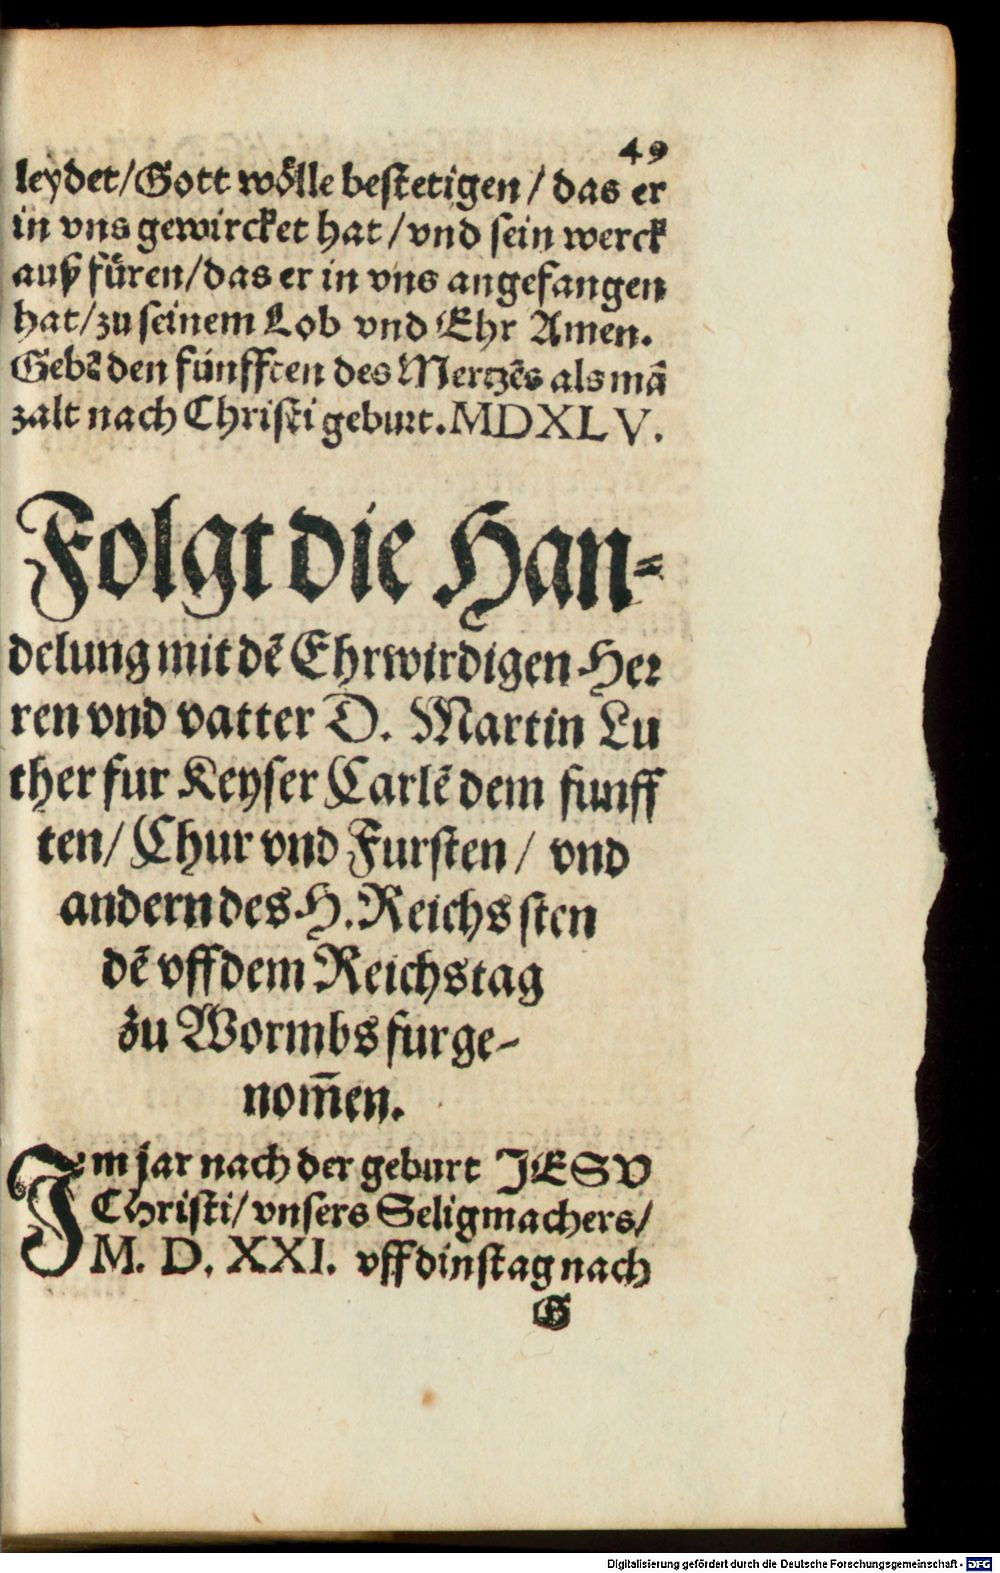 49
leydet/Gott wölle bestetigen/ das er
in vns gewircket hat/vnd sein werck
auß füren/das er in vns angefangen
hat/zu seinem Lob vnd Ehr Amen.
Gebē den fünfften des Mertzēs als mā
zalt nach Christi geburt.MDXLV.
Folgt die Han-
delung mit dē Ehrwirdigen Her
ren vnd vatter D. Martin Lu
ther fur Keyser Carlē dem funff
ten/ Chur vnd Fursten/ vnd
andern des H.Reichs sten
dē vff dem Reichstag
zu Wormbs fur ge-
nom̄en.
Im jar nach der geburt JESV
Christi/ vnsers Seligmachers/
M. D. XXI. vff dinstag nach
G
Digitalisierung gefördert durch die Deutsche Forschungsgemeinschaft - DFG